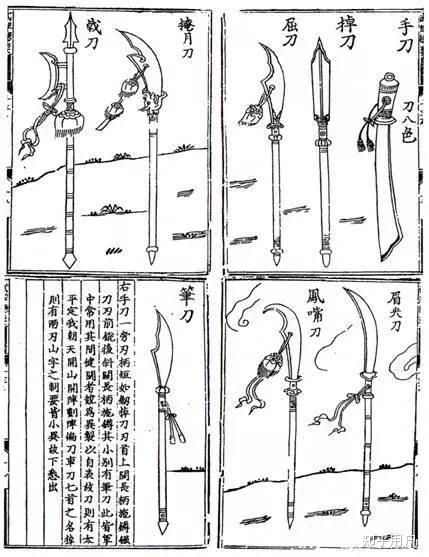 手刀
刀八色
掉刀
屈刀
掩月刀
戟刀
眉尖刀
鳳嘴刀
筆刀
右手刀一旁刃柄短如劍掉刀刃首上闊長柄施鐏
刀刃前銳後斜闊長柄施鐏其小別有筆刀此皆軍
中常用其間健鬭者競爲異製以自表故刀則有太
平定我朝天開山開陣劃陣偏刀車刀匕首之名掉
則有兩刃山字之制要皆小異故不悉出